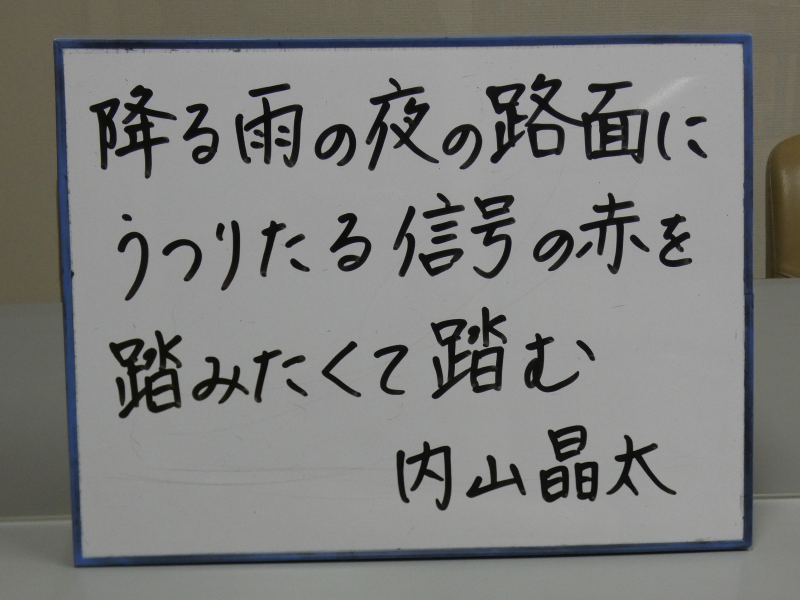 降る雨の夜の路面に
うつりたる信号の赤を
踏みたくて踏む
内山晶太